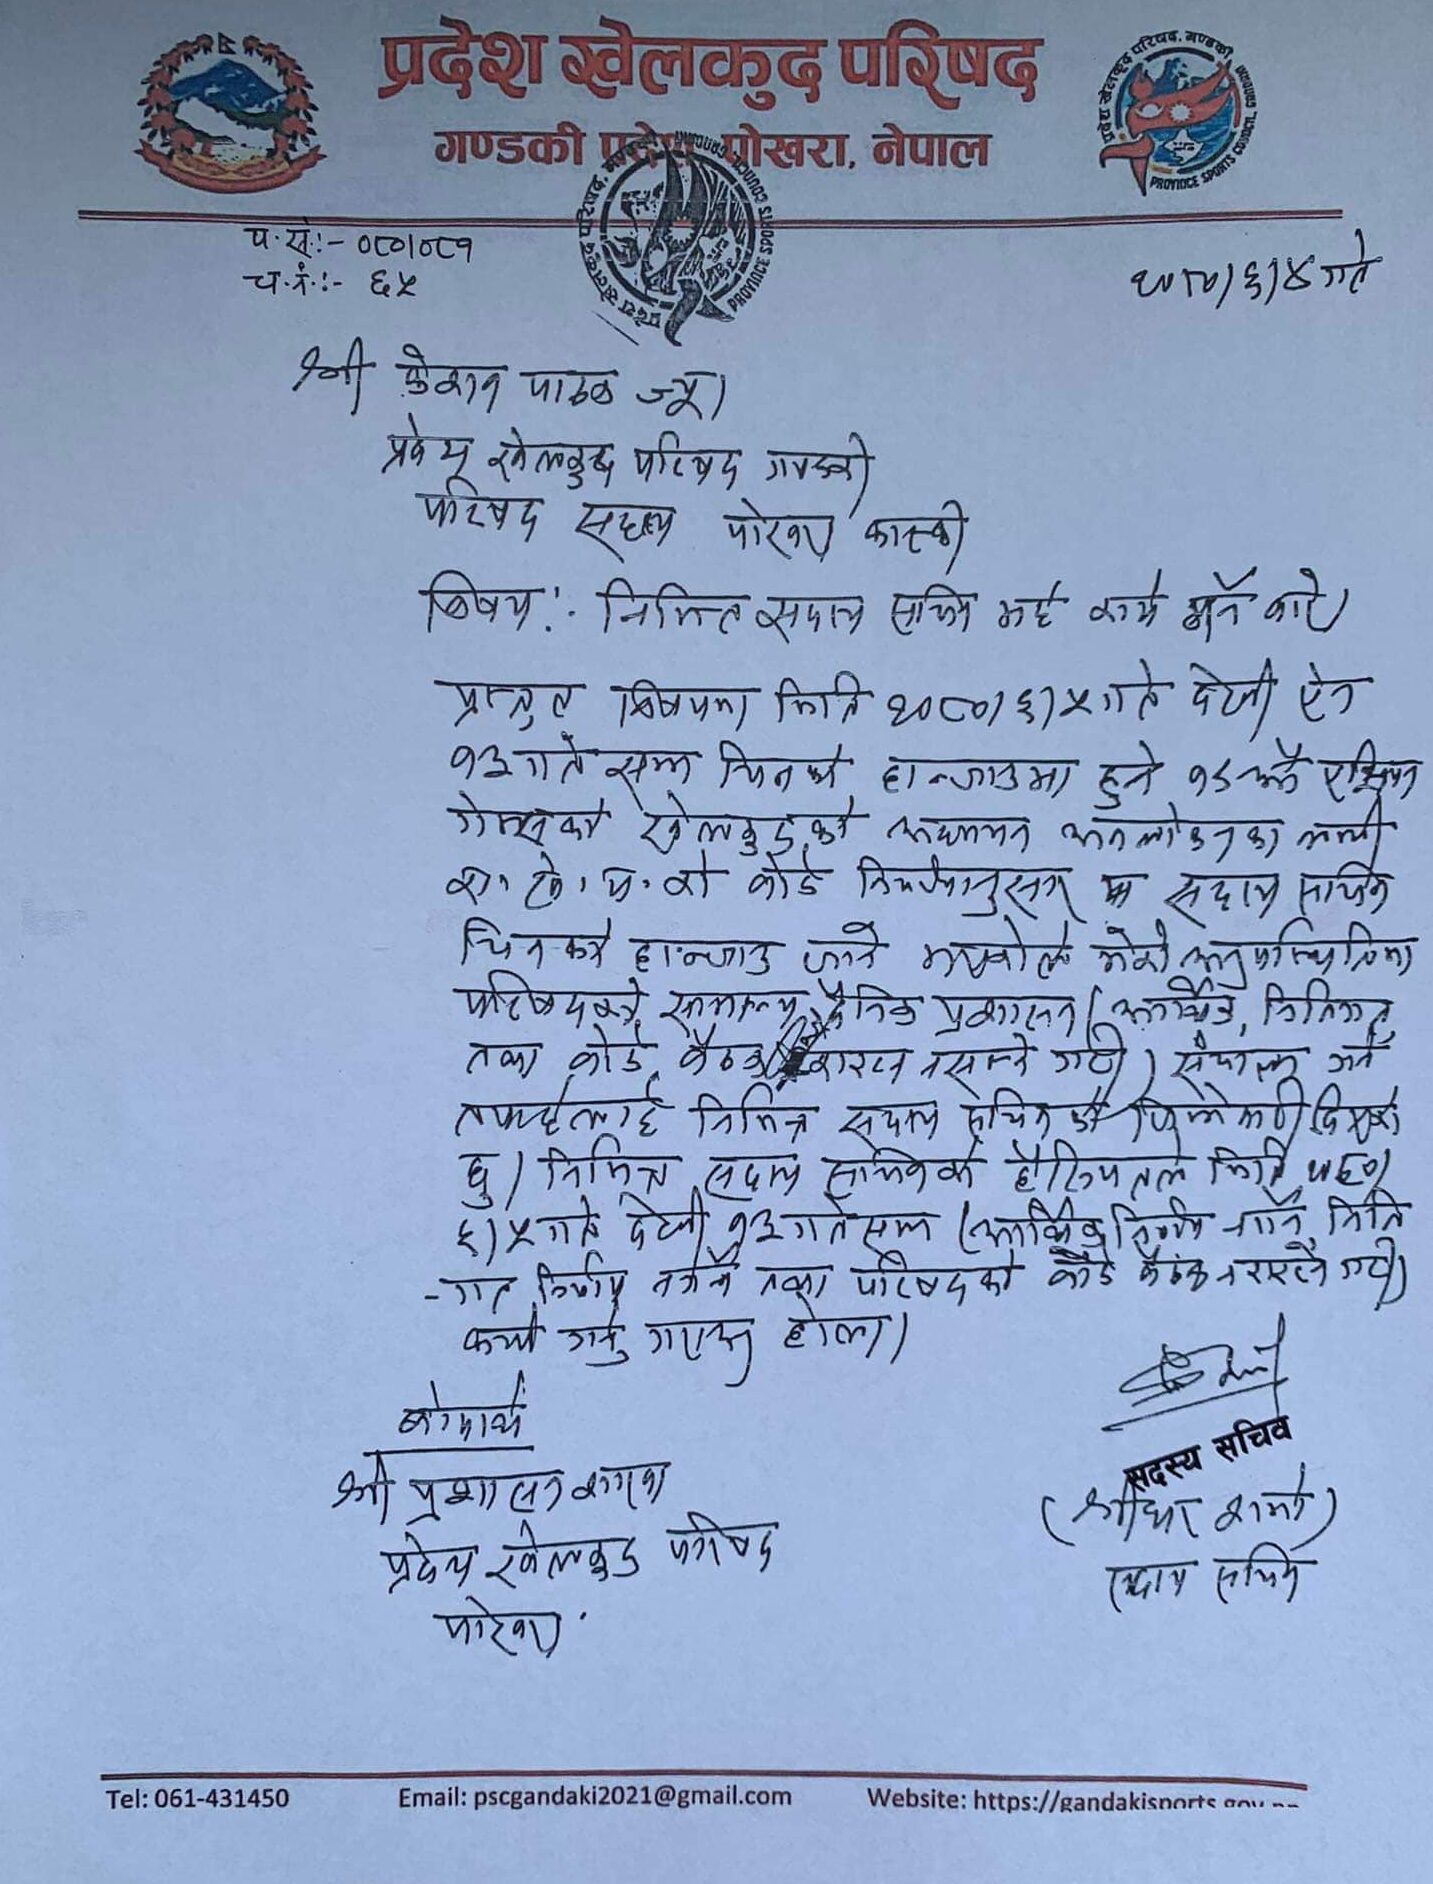 प्रदेश खेलकुद परिषद
गण्डकी प्रदेश, पोखरा, नेपाल
प्रदेश खेलकुद परिषद, गण्डकी
PROVINCE SPORTS COUNCIL, GANDAKI
प. सं.:- ०८०/०८१
च. नं.:- ६५
२०८०/६/४ गते
श्री केशव पाठक ज्यू।
प्रदेश खेलकुद परिषद गण्डकी
परिषद सदस्य पोखरा कास्की
विषय:- निमित्त सदस्य सचिव भई कार्य गर्ने बारे।
प्रस्तुत विषयमा मिति २०८०/६/५ गते देखी ऐन
१३ गते सम्म चिनको हान्जाउमा हुने १९ औं एसियन
गेम्सको खेलकुदको अध्ययन अवलोकनका लागी
रा. खे. प. को बोर्ड निर्णयानुसार म सदस्य सचिव
चिनको हान्जाउ जाने भएकोले मेरो अनुपस्थितिमा
परिषदको सामान्य दैनिक प्रशासन (आर्थिक, नितिगत
तथा बोर्ड बैठक नराख्ने गरी) संचालन गर्न
तपाईलाई निमित्त सदस्य सचिवको जिम्मेवारी दिएको
छु। निमित्त सदस्य सचिवको हैसियतले मिति २०८०/
६/५ गते देखी १३ गते सम्म (आर्थिक निर्णय नगर्ने, निति
-गत निर्णय नगर्ने तथा परिषदको बोर्ड बैठक नराख्ने गरी)
कार्य गर्नु गराउनु होला।
बोधार्थ
श्री प्रशासन शाखा
प्रदेश खेलकुद परिषद
पोखरा
सदस्य सचिव
(श्रीधर शर्मा)
सदस्य सचिव
Tel: 061-431450 Email: pscgandaki2021@gmail.com Website: https://gandakisports.gov.np